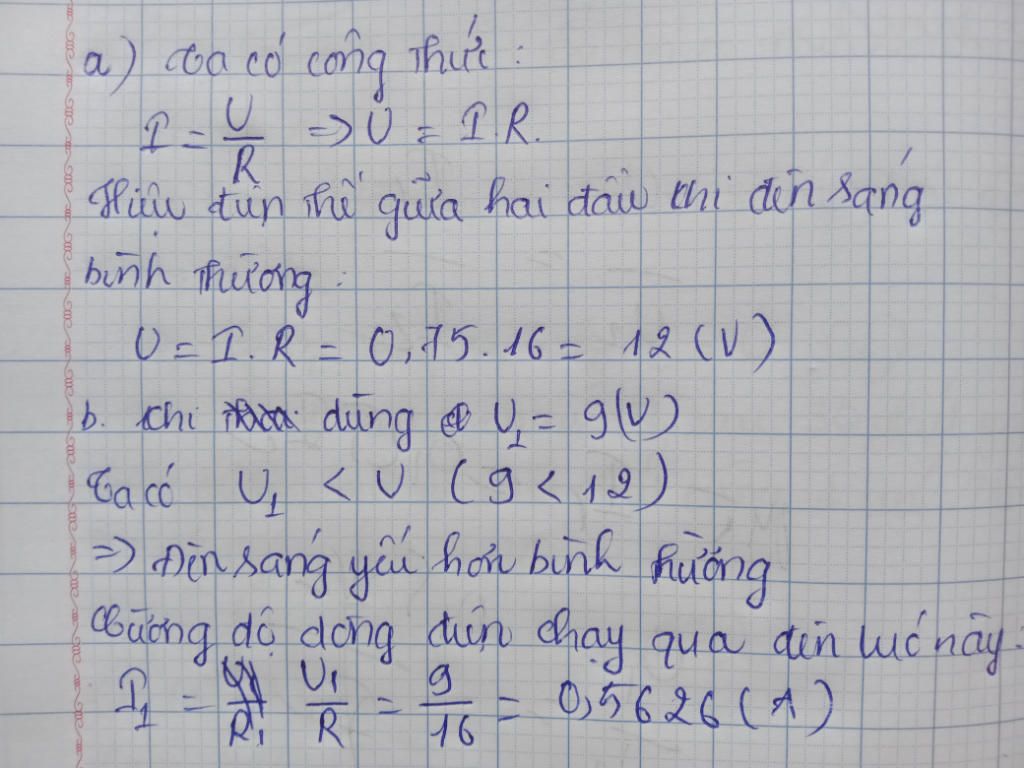 a) Ta có công thức:
I = U/R => U = I.R.
Hiệu điện thế giữa hai đầu khi đèn sáng
bình thường:
U = I.R = 0,75.16 = 12 (V)
b. Khi dùng U₁ = 9(V)
Ta có U₁ < U (9 < 12)
=> Đèn sáng yếu hơn bình thường
Cường độ dòng điện chạy qua đèn lúc này:
I₁ = U₁/R = 9/16 = 0,5626 (A)